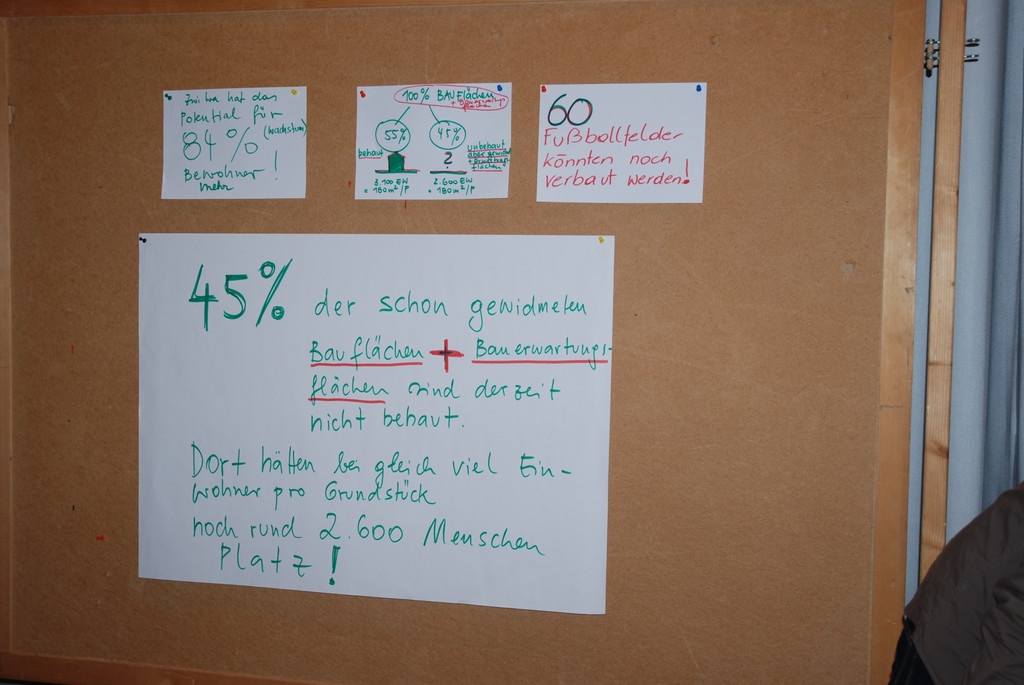 hat das
Potential für
84% (Wachstum)
Bewohner !
mehr
100% BAUflächen
+ Bauerwartungs
flächen
55%
45%
behaut
?
unbebaut
aber gewidmet
+ Erwartungs
flächen
3.100 EW
= 180m²/P
2.600 EW
= 180m²/P
60
Fußbollfelder
könnten noch
verbaut werden!
45% der schon gewidmeten
Bauflächen + Bauerwartungs-
flächen sind derzeit
nicht behaut.
Dort hätten bei gleich viel Ein-
wohner pro Grundstück
noch rund 2.600 Menschen
Platz !